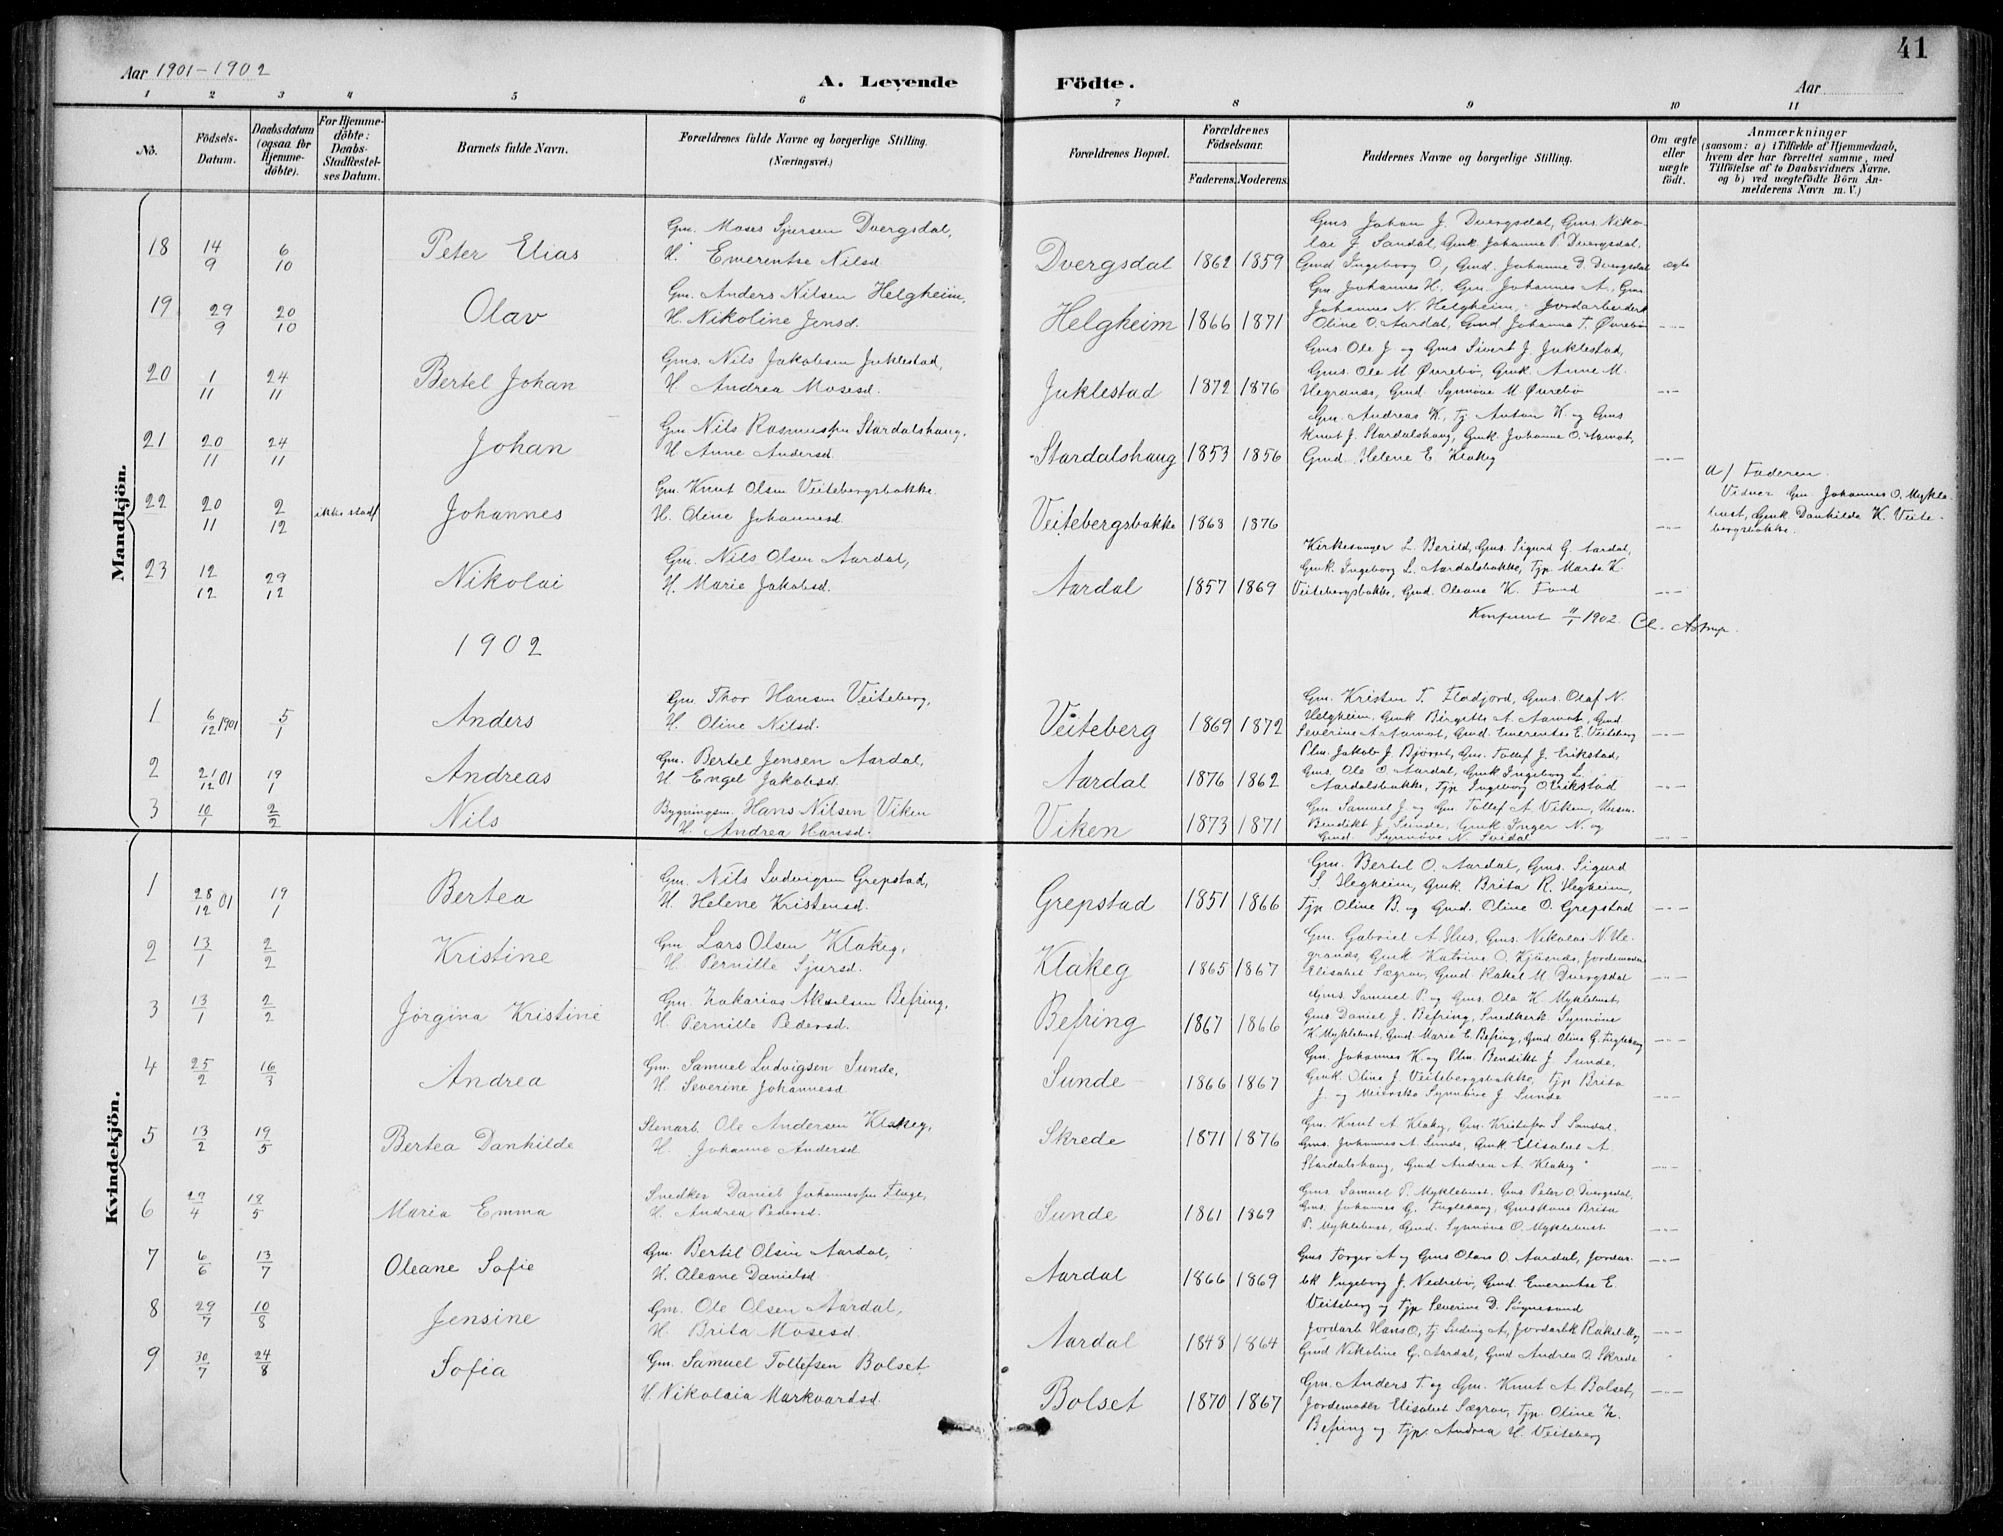 41
Aar 1901-1902
A. Levende Födte.
Aar
1 2 3 4 5 6 7 8 9 10 11
No.
Födsels-Datum.
Daabsdatum (ogsaa for Hjemme-döbte).
For Hjemme-döbte: Daabs-Stadfæstel-ses Datum.
Barnets fulde Navn.
Forældrenes fulde Navne og borgerlige Stilling. (Næringsvei.)
Forældrenes Bopæl.
Forældrenes Födselsaar.
Faderens. Moderens.
Faddernes Navne og borgerlige Stilling.
Om ægte eller uægte födt.
Anmærkninger
(saasom: a) i Tilfælde af Hjemmedaab, hvem der har forrettet samme, med Tilföielse af to Daabsvidners Navne. og b) ved uægtefödte Börn An-melderens Navn m. V.)
Mandkjön.
18 14/9 6/10 Peter Elias Gm. Moses Sjursen Dvergsdal, H. Emerentse Nilsd Dvergsdal 1862 1859
Gms Johan J. Dvergsdal, Gms. Niko-
lai J. Sandal, Gmk Johanne P. Dvergsdal,
Gmd Ingeborg O., Gmd. Johanne D. Dvergsdal ægte
19 29/9 20/10 Olav Gm. Anders Nilsen Helgheim, H. Nikoline Jensd. Helgheim 1866 1871
Gm. Johannes H., Gm. Johannes A., Gms.
Johannes N. Helgheim, Jordarbeiderk
Oline O. Aardal, Gmd. Johanne T. Øvrebø -..-
20 1/11 24/11 Bertel Johan Gms. Nils Jakobsen Juklestad, H. Andrea Mosesd. Juklestad 1872 1876
Gms. Ole J. og Gms Sivert J. Juklestad,
Gms. Ole M. Øvrebø, Gmk. Anne M.
Hegranes, Gmd. Synnøve M. Øvrebø -..-
21 20/11 24/11 Johan Gm Nils Rasmussen Stardalshaug, H. Anne Andersd. Stardalshaug 1853 1856
Gm. Andreas K., Tj Anton K. og Gms
Knut J. Stardalshaug, Gmk. Johanne O. Aamot,
Gmd. Helene E. Klakeg -..-
22 20/11 2/12 ikke stadf Johannes Gm. Knut Olsen Veitebergsbakke. H. Oline Johannesd. Veitebergsbakke 1868 1876 -..-
a) Faderen.
Vidner Gm. Johannes O. Mykle-
bust, Gmk Dankilde K. Veite-
bergsbakke.
23 12/12 29/12 Nikolai Gm. Nils Olsen Aardal, H. Marie Jakobsd. Aardal 1857 1869
Kirkesanger L. Berild, Gms. Sigurd G. Aardal,
Gmk. Ingeborg L. Aardalsbakke, Tjp Marta K.
Veitebergsbakke, Gmd. Oleane K. Fond -..-
Konfereret 11/1 1902. Cl. Astrup.
1902
1 6/12 1901 5/1 Anders Gm. Thor Hansen Veiteberg, H. Oline Nilsd. Veiteberg 1869 1872
Gm. Kristen T. Fladjord, Gms. Olaf N.
Helgheim, Gmk Birgitte A. Aamot, Gmd
Severine A Aamot, Gmd. Emerentse E. Veiteberg -..-
2 21/12 01 19/1 Andreas Gm. Bertel Jensen Aardal, H Engel Jakobsd. Aardal 1876 1862
Plm. Jakob J. Bjørset, Gm. Tollef J. Erikstad,
Gms. Ole O. Aardal, Gmk Ingeborg L.
Aardalsbakke, Tjp Ingeborg O Erikstad -..-
3 10/1 2/2 Nils Bygningsm. Hans Nilsen Viken H. Andrea Hansd. Viken 1873 1871
Gm. Samuel J. og Gm. Tollef A. Viken, Husm.
Bendikt J. Sunde, Gmk Inger N. og
Gmd. Synnøve N. Svidal -..-
Kvindekjön.
1 28/12 01 19/1 Bertea Gm. Nils Ludvigsen Grepstad, H. Helene Kristensd. Grepstad 1851 1866
Gm. Bertel O. Aardal, Gms. Sigurd
S. Hegheim, Gmk. Brita R. Hegheim,
Tjp Oline B. og Gmd. Oline O. Grepstad -..-
2 13/1 2/2 Kristine Gm. Lars Olsen Klakeg, H. Pernille Sjursd. Klakeg 1865 1867
Gm. Gabriel A. Hus, Gms. Nikolas N. He-
granes, Gmk Katrine O. Kjøsnes, Jordemoder
Elisabet Sægrov, Gmd Rakel M. Dvergsdal -..-
3 13/1 2/2 Jørgina Kristine Gm. Zakarias Akselsen Befring, H. Pernille Pedersd. Befring 1867 1866
Gms. Samuel P. og Gms. Ole K. Myklebust,
Gms Daniel J. Befring, Snedkerk Synnøve
K. Myklebust, Gmd Marie E. Befring, Gmd Oline G. Fugleberg -..-
4 25/2 16/3 Andrea Gm. Samuel Ludvigsen Sunde, H. Severine Johannesd Sunde 1866 1867
Gm. Johannes K. og Plm. Bendikt J. Sunde,
Gmk. Oline J. Veitebergsbakke, Tjp Brita
J. og Meierske Synnøve J Sunde -..-
5 13/2 19/5 Bertea Dankilde Stenarb. Ole Andersen Klakeg, H. Johanne Andersd Skrede 1871 1876
Gm. Knut A. Klakeg, Gm. Kristofer S Sandal.
Gms. Johannes A. Sunde, Gmk Elisabet A
Stardalshaug, Gmd Andrea A. Klakeg -..-
6 29/4 19/5 Maria Emma Snedker Daniel Johannessen Fluge, H. Andrea Pedersd. Sunde 1861 1869
Gms. Samuel P. Myklebust. Gms. Peter O. Dvergsdal,
Gms. Johannes G. Fuglehaug, Gmskone Brita
P. Myklebust, Gmd. Synnøve O. Myklebust -..-
7 6/6 13/7 Oleane Sofie Gm. Bertil Olsen Aardal, H. Oleane Danielsd Aardal 1866 1869
Gms Torger A og Gms Olars O. Aardal, Jordar- -..-
bk Ingeborg J. Nedrebø, Gmd. Emerentse E.
Veiteberg og Tjp Severine D. Søgnesand
8 29/7 10/8 Jensine Gm. Ole Olsen Aardal, H. Brita Mosesd. Aardal 1848 1864
Jordarb Hans O, Tj. Ludvig A, Jordarbk Rakel M og -..-
Gmd Nikoline G. Aardal, Gmd Andrea O. Skrede
9 30/7 24/8 Sofia Gm. Samuel Tollefsen Bolset H. Nikolaia Markvardsd. Bolset 1870 1867
Gm. Anders T. og Gm. Knut A. Bolset, -..-
Jordemoder Elisabet Sægrov, Tjp. Oline Z.
Befring og Tjp. Andrea H. Veiteberg